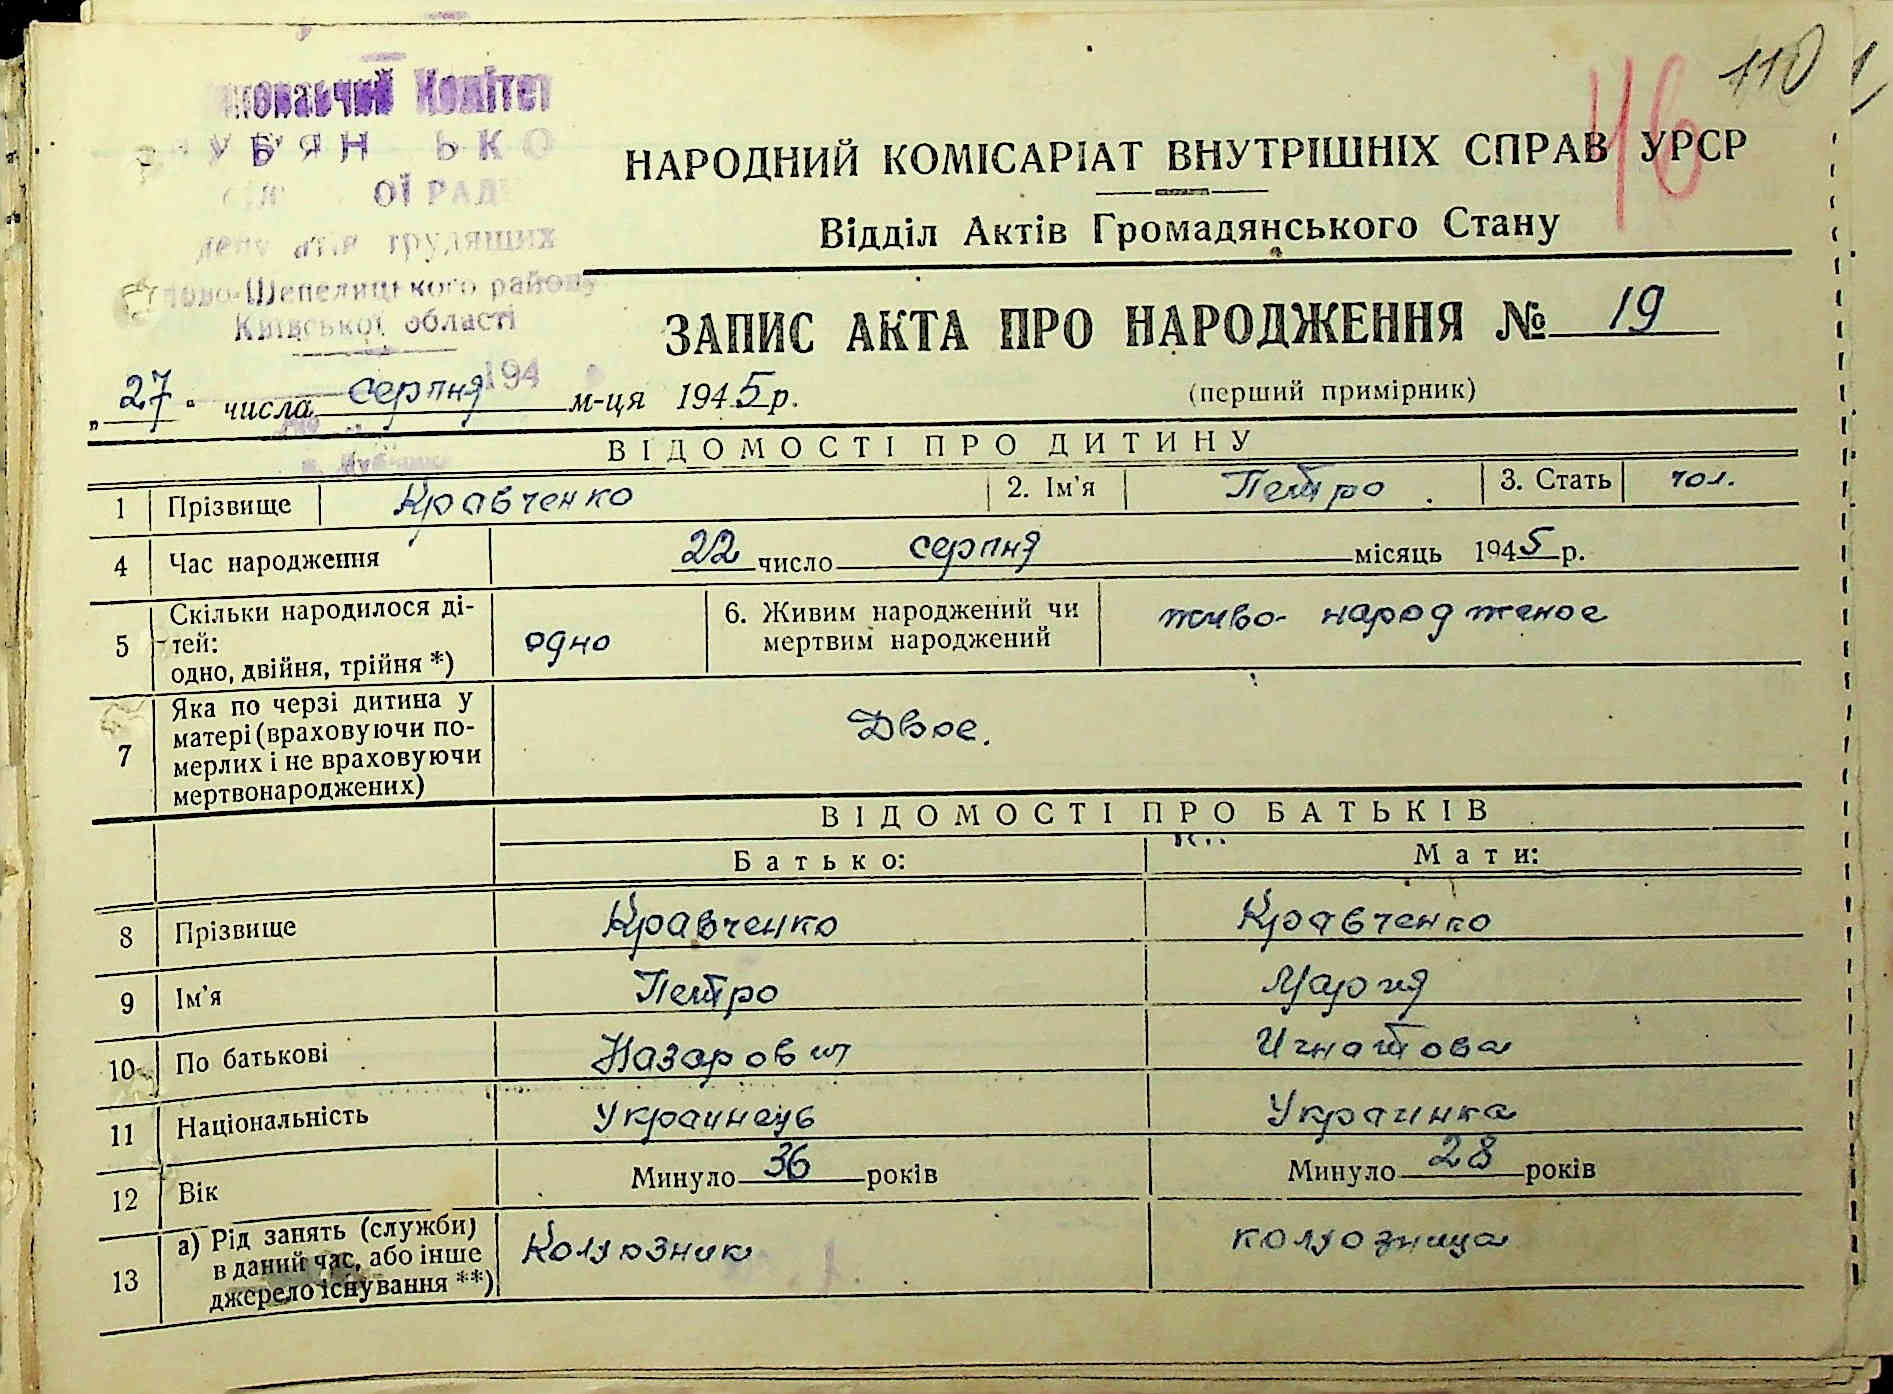 110
46
Комітет
ОЇ РАД
трудящих
Ново-Шепелицького району
Київської області
194
НАРОДНИЙ КОМІСАРІАТ ВНУТРІШНІХ СПРАВ УРСР
Відділ Актів Громадянського Стану
ЗАПИС АКТА ПРО НАРОДЖЕННЯ № 19
(перший примірник)
„27" числа серпня м-ця 1945 р.
ВІДОМОСТІ ПРО ДИТИНУ
1 Прізвище Кравченко 2. Ім'я Петро 3. Стать чол.
4 Час народження 22 число серпня місяць 1945 р.
5 Скільки народилося ді-
тей:
одно, двійня, трійня *) одно 6. Живим народжений чи
мертвим народжений живо-народженое
7 Яка по черзі дитина у
матері (враховуючи по-
мерлих і не враховуючи
мертвонароджених) Двое.
ВІДОМОСТІ ПРО БАТЬКІВ
Батько: Мати:
8 Прізвище Кравченко Кравченко
9 Ім'я Петро Мария
10 По батькові Назарович Игнатова
11 Національність Украинець Украинка
12 Вік Минуло 36 років Минуло 28 років
13 а) Рід занять (служби)
в даний час, або інше
джерело існування **) Колхозник колхозница